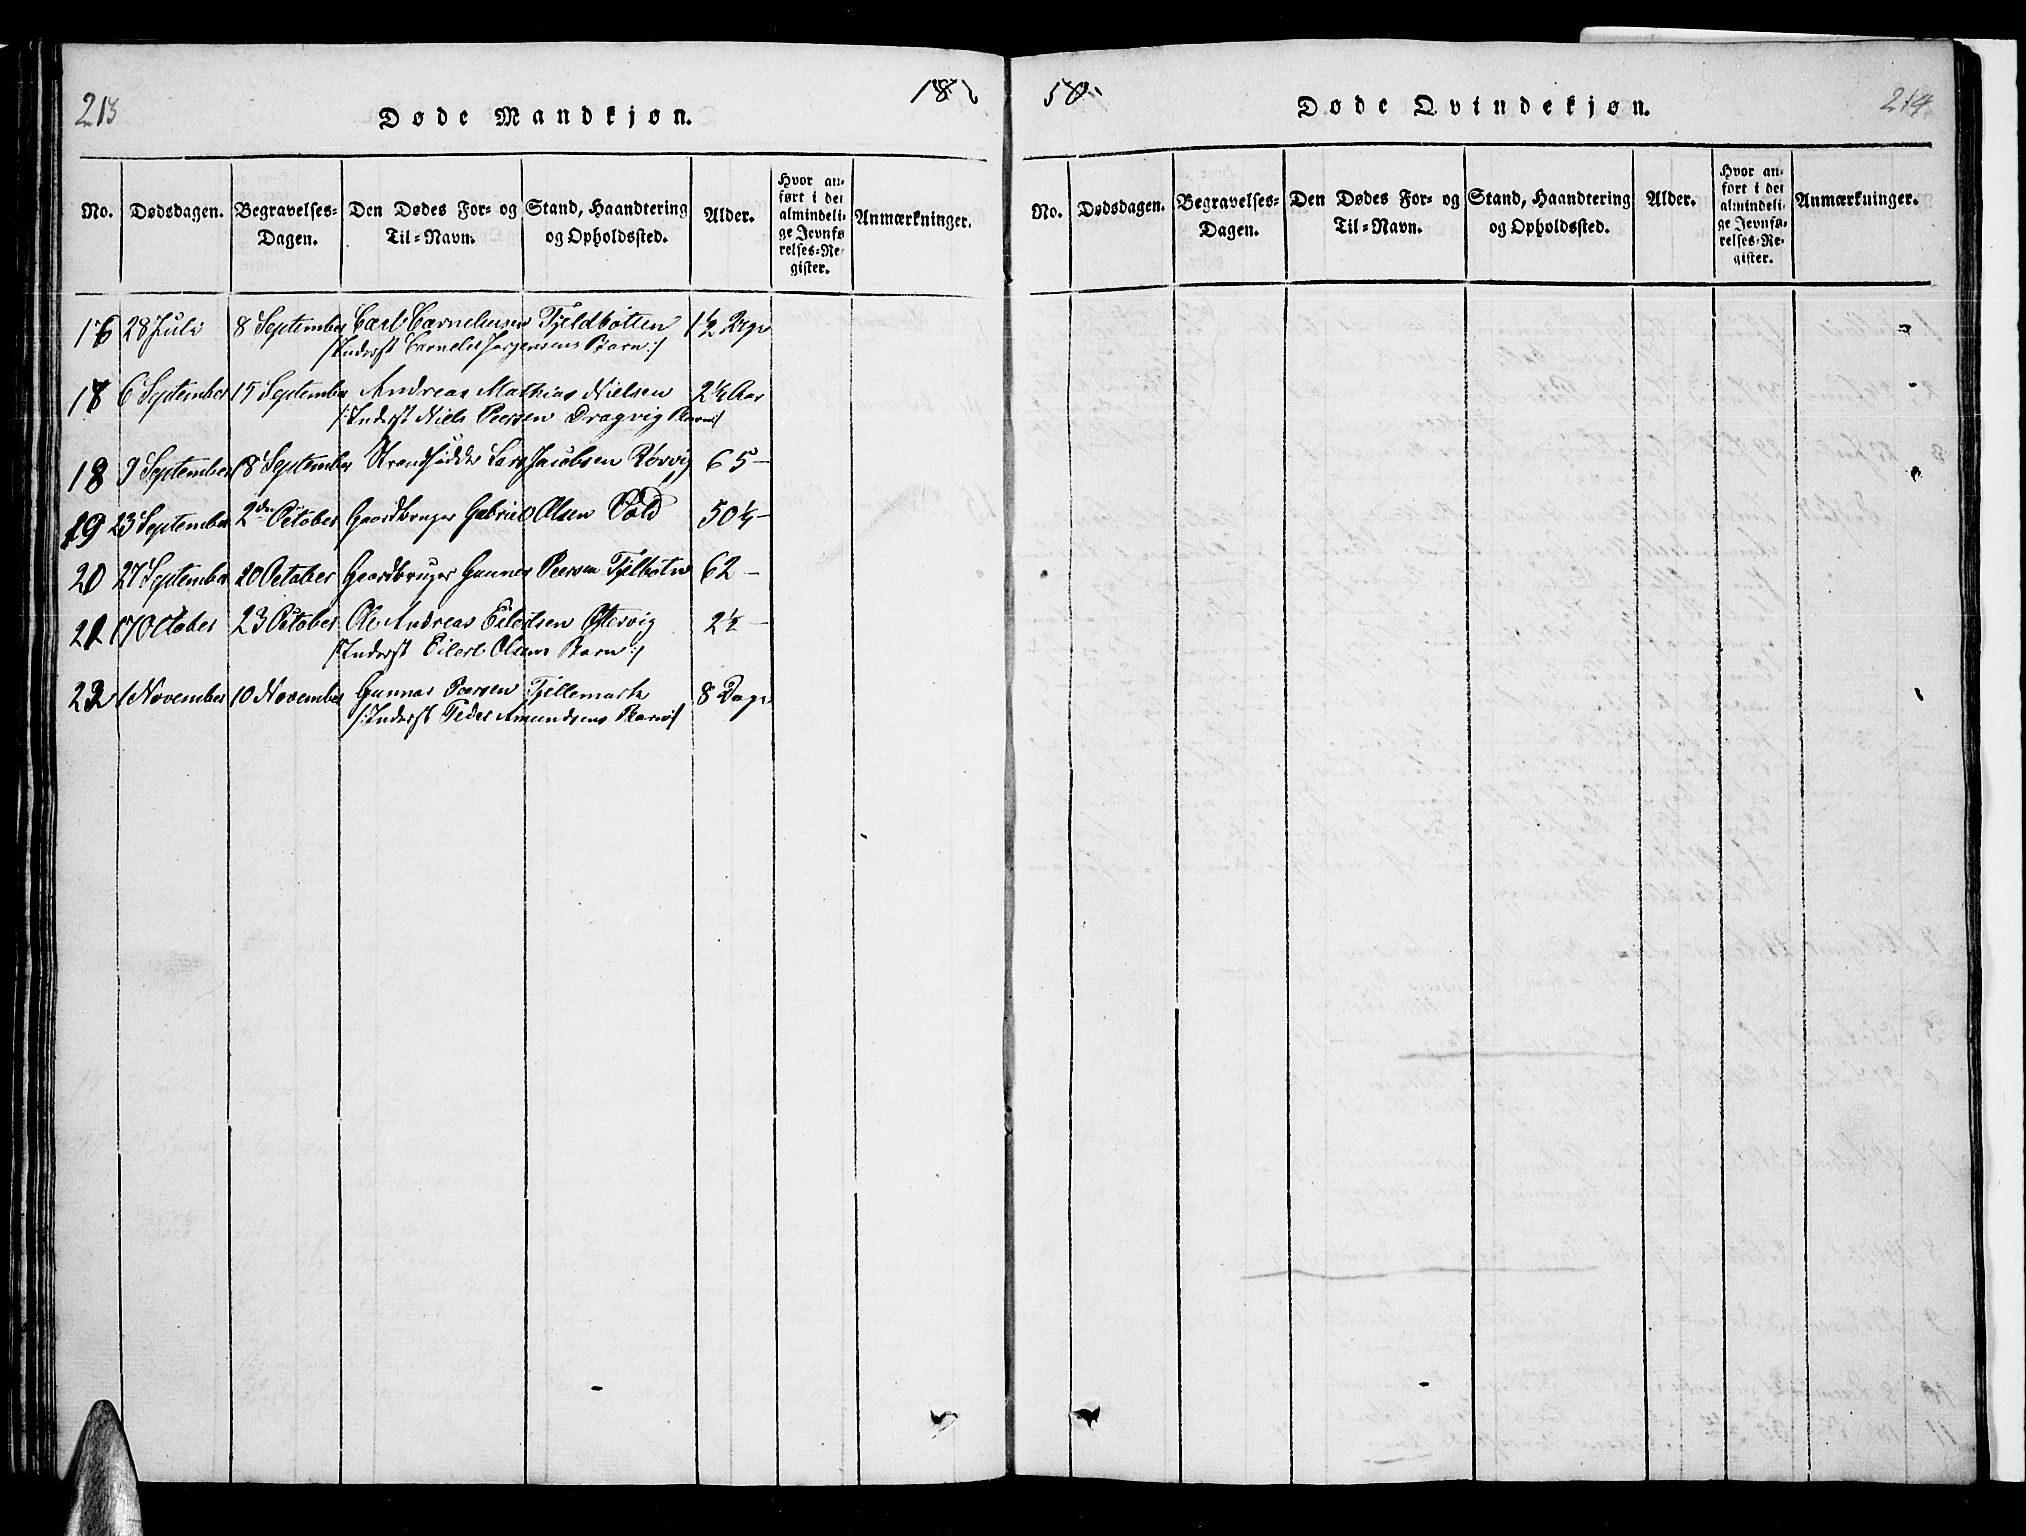 213
18
Døde Mandkjøn.
No. Dødsdagen. Begravelses-Dagen. Den Dødes For- og Til-Navn. Stand, Haandtering og Opholdssted. Alder. Hvor anført i det almindelige Jevnførelses-Register. Anmærkninger.
16 28 Juli 8 September Carl Cornelius­sen Fjeldbotten 1½ Dage
/:Inderst Cornelius Jørgensens Barn:/
18 6 September 15 September Andreas Mathias Nielsen 2½ Aar
/:Inderst Niels Peersen Dragvig Barn:/
18 9 September 18 September Strandsidder Lars Jacobsen Rørvig 65 –
19 23 September 2den October Gaardbruger Gabriel Olsen Vold 50½ –
20 27 September 20 October Gaardbruger Gunner Peersen 62 –
21 17 October 23 October Ole Andreas Eilertsen 2½ –
/:Inderst Eilert Olsens Barn:/
22 1 November 10 November Gunnar Peersen Tjellemark 8 Dage
/:Inderst Peder Amundsens Barn:/
50.
214
Døde Qvindekjøn.
No. Dødsdagen. Begravelses-Dagen. Den Dødes For- og Til-Navn. Stand, Haandtering og Opholdssted. Alder. Hvor anført i det almindelige Jevnførelses-Register. Anmærkninger.